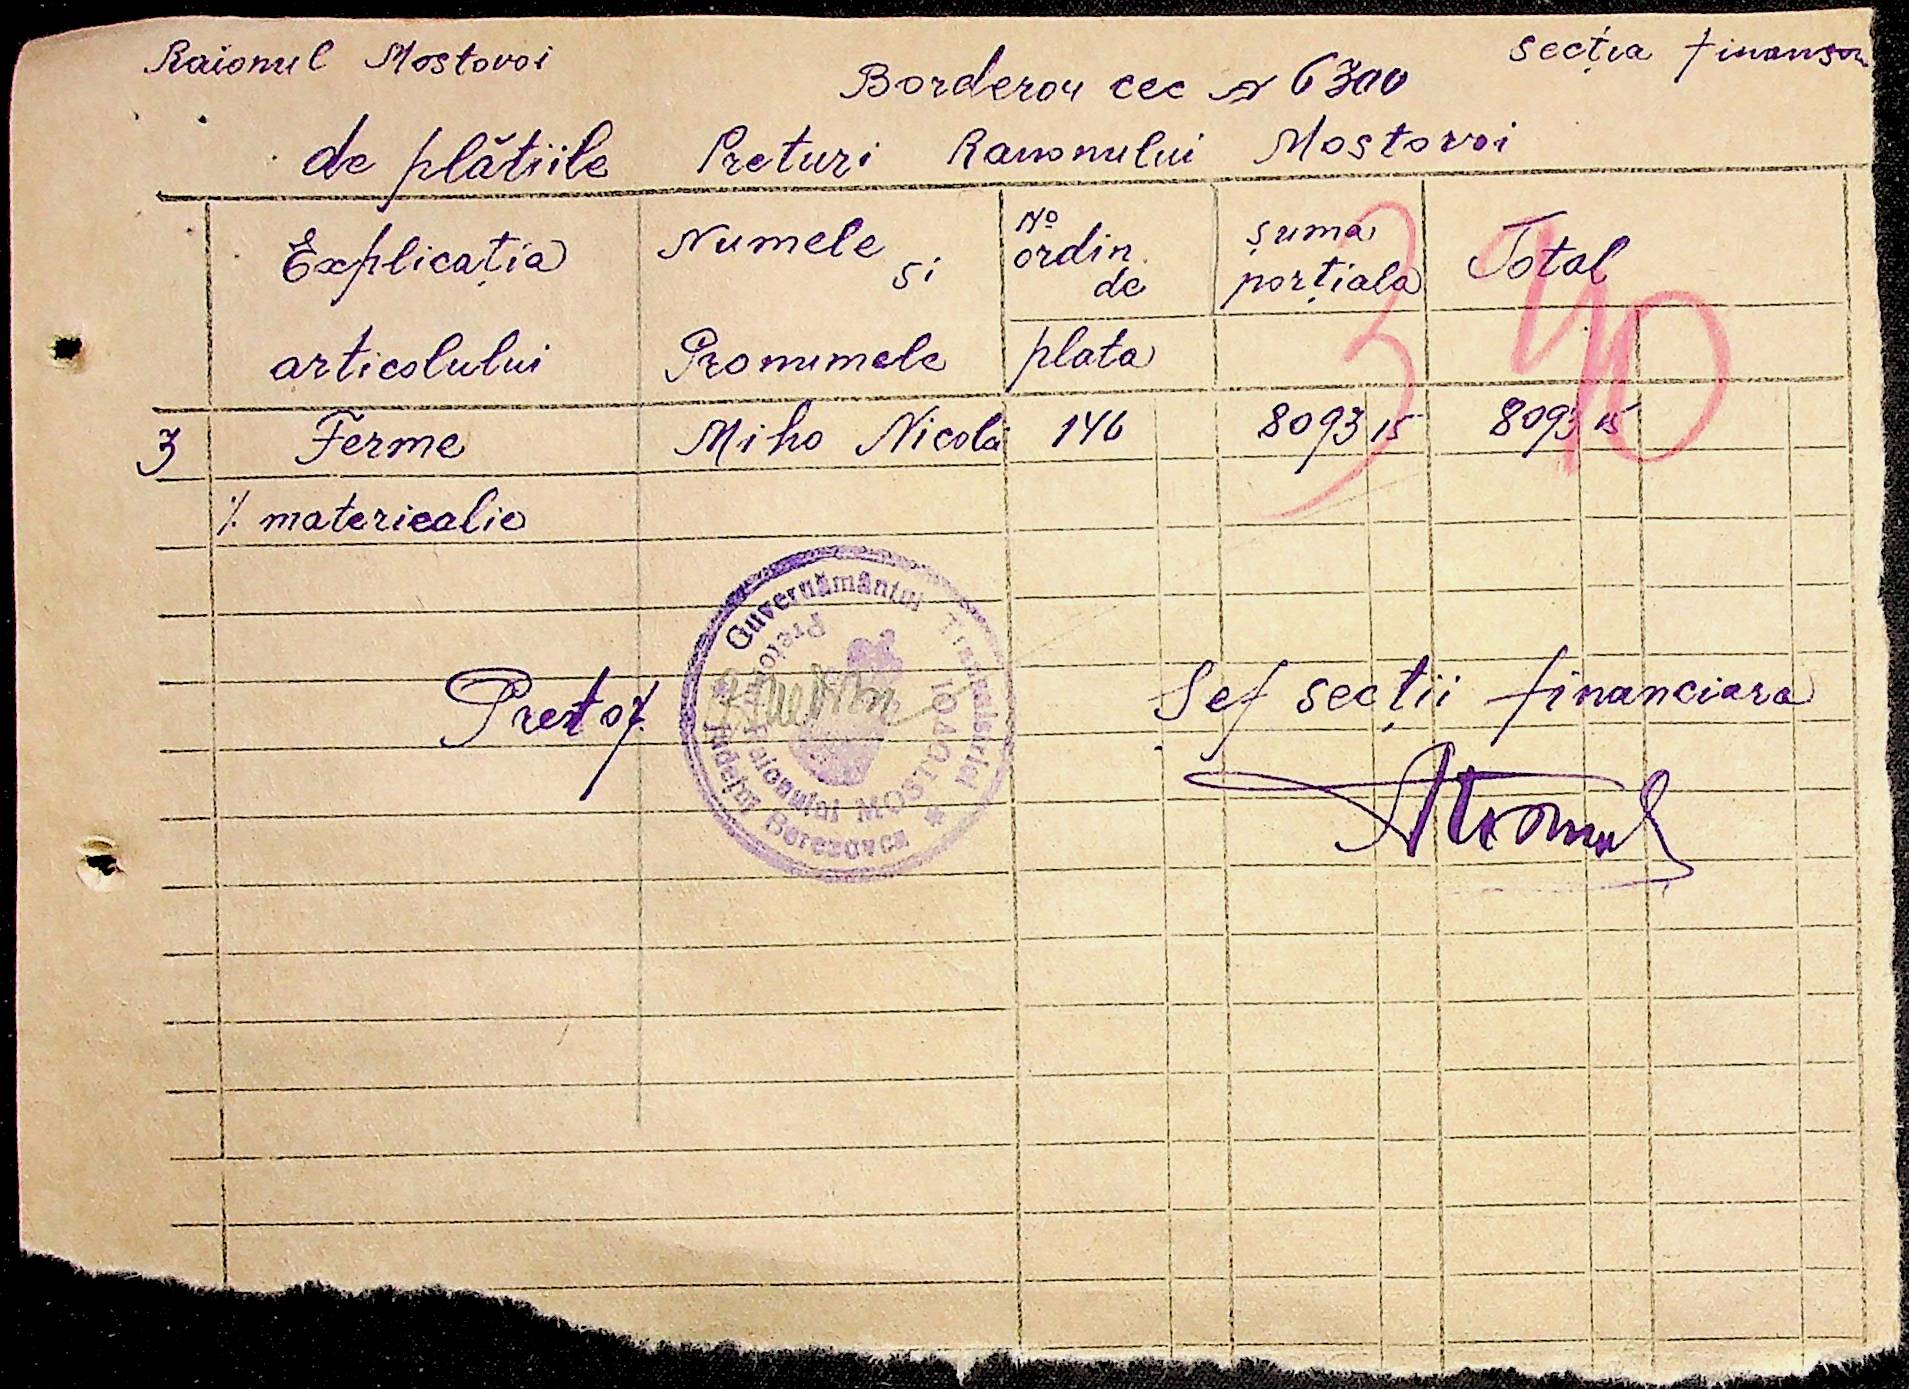 Raionul Mostovoi
secția finanson
Borderou cec № 6300
de plătiile Preturi Raionului Mostovoi
Explicația articolului
Numele și Pronumele
№ ordin de plata
șuma porțiala
Total
340
3 Ferme Miho Nicolai 146 8093 15 8093 15
% materiealie
Guvernământul Transnistriei
Județul Berezovca
Pretora Raionului MOSTOVOI
Pretor
Șef secții financiara